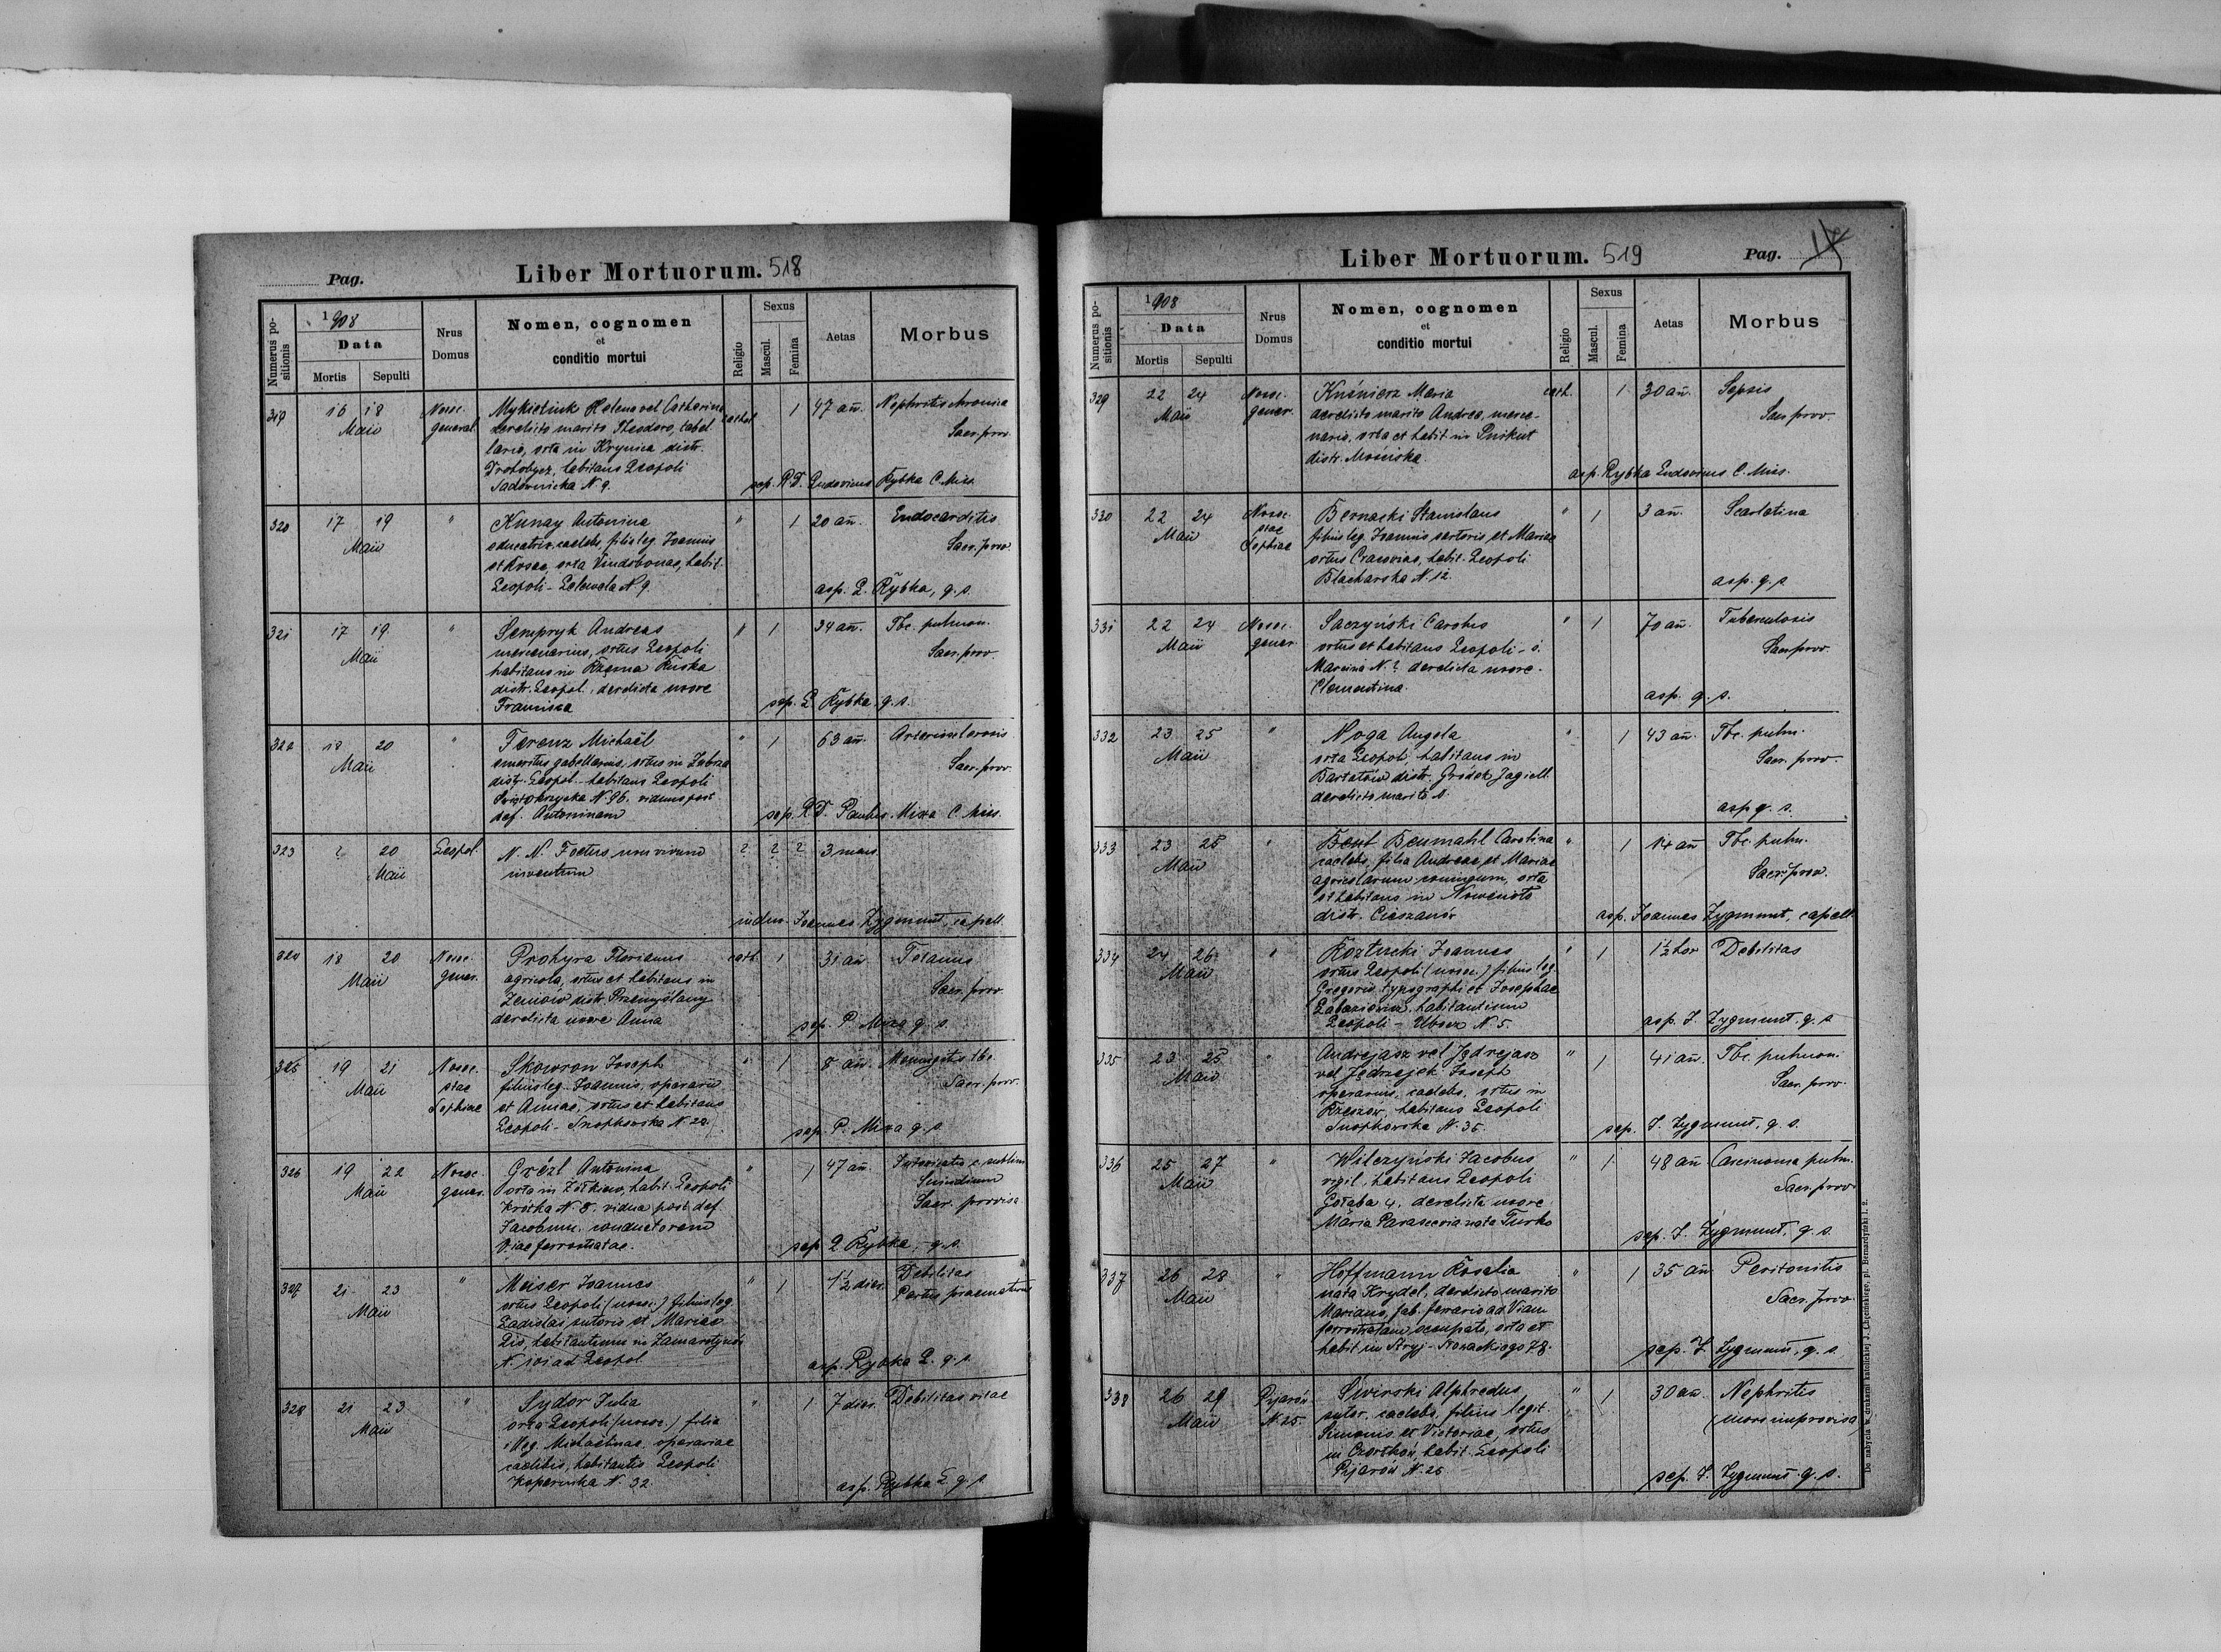 Pag.
Liber Mortuorum. 518
Numerus positionis
1908
Data
Mortis
Sepulti
Nrus Domus
Nomen, cognomen
et
conditio mortui
Religio
Sexus
Mascul.
Femina
Aetas
Morbus
319 16 18 Nosoc. Mykietiuk Helena vel Catharina cathol. 1 47 an. Nephritis chronica
Maii general. derelicto marito Theodoro, tabel
lario, orta in Krynica distr. Sacr. prov.
Drohobycz, habitans Leopoli
Sadownicka N 9. sep. R.D. Ludovicus Rybka C. Miss.
320 17 19 " Kunay Antonina " 1 20 an. Endocarditis
Maii educatrix caelebs, filia leg. Joannis Sacr. prov.
et Rosae, orta Vindobonae, habit.
Leopoli - Lelewela N 9. asp. L. Rybka, q. s.
321 17 19 " Sempryk Andreas " 1 34 an. Tbc. pulmon.
Maii mercenarius, ortus Leopoli Sacr. prov.
habitans in Rzęsna Ruska
distr. Leopol., derelicta uxore
Francisca sep. L. Rybka, q. s.
322 18 20 " Ferenz Michaël " 1 63 an. Arteriosclerosis
Maii emeritus gabellarius, ortus in Zubrza Sacr. prov.
distr. Leopol. habitans Leopoli
Świętokrzyska N. 96. viduus post
def. Antoninam sep. R.D. Paulus Mixa C. Miss.
323 ? 20 Leopol. N. N. Foetus non vivum ? ? ? 3 mens.
Maii inventum
Joannes Zygmunt, capell.
324 18 20 Nosoc. Prohyra Florianus cath. 1 31 an. Tetanus
Maii gener. agricola, ortus et habitans in Sacr. prov.
distr. Przemyślany
derelicta uxore Anna sep. P. Mixa q. s.
325 19 21 Nosoc. Skowron Joseph " 1 8 an. Meningitis tbc.
Maii stae filius leg. Joannis, operarii Sacr. prov.
Sophiae et Annae, ortus et habitans
Leopoli - Snopkowska N 22. sep. P. Mixa q. s.
326 19 22 Nosoc. Grézl Antonina " 1 47 an. Intoxicatio c. sublim.
Maii gener. orta in Żółkiew, habit. Leopoli Suicidium
Krótka N. 8. vidua post def. Sacr. provisa
Jacobum, conductorem
Viae ferrostratae. sep. L. Rybka, q. s.
327 21 23 " Meiser Joannes " 1 1½ dies Debilitas
Maii ortus Leopoli (nosoc.) filius leg. Partus praematurus
Ladislai sutoris et Mariae
Lis, habitantium in Zamarstynów
N. 101 ad Leopol. asp. Rybka L. q. s.
328 21 23 " Sydor Julia " 1 7 dies Debilitas vitae
Maii orta Leopoli (nosoc.) filia
illeg. Michaëlinae, operariae
caelibis, habitantis Leopoli
Kopernika N. 32. asp. Rybka L. q. s.
Liber Mortuorum. 519
Pag.
Numerus positionis
1908
Data
Mortis
Sepulti
Nrus Domus
Nomen, cognomen
et
conditio mortui
Religio
Sexus
Mascul.
Femina
Aetas
Morbus
329 22 24 Nosoc. Kuśnierz Maria cath. 1 30 an. Sepsis
Maii gener. derelicto marito Andrea, merce- Sacr. prov.
nario, orta et habit. in Pnikut
distr. Mościska. asp. Rybka Ludovicus C. Miss.
330 22 24 Nosoc. Bernacki Stanislaus " 1 3 an. Scarlatina
Maii stae filius leg. Joannis sartoris et Mariae
Sophiae ortus Cracoviae, habit. Leopoli
Blacharska N. 12. asp. q. s.
331 22 24 Nosoc. Saczyński Carolus " 1 70 an. Tuberculosis
Maii gener. ortus et habitans Leopoli - ś. Sacr. prov.
Marcina N. ? derelicta uxore
Clementina. asp. q. s.
332 23 25 " Noga Angela " 1 43 an. Tbc. pulm.
Maii orta Leopoli, habitans in Sacr. prov.
Bartatów distr. Gródek Jagiell.
derelicto marito s. asp. q. s.
333 23 25 " Beumahl Carolina " 1 14 an. Tbc. pulm.
Maii caelebs, filia Andreae et Mariae Sacr. prov.
agricolarum coniugum, orta
et habitans in
distr. Cieszanów asp. Joannes Zygmunt, capell.
334 24 26 " Kozłucki Joannes " 1 1½ hor Debilitas
Maii ortus Leopoli (nosoc.) filius leg.
Gregorii typographi et Josephae
habitantium
Leopoli - Ubocz N. 5. asp. J. Zygmunt, q. s.
335 23 25 " Andrejasz vel Jędrejasz " 1 41 an. Tbc. pulmon.
Maii vel Jędrzejek Joseph Sacr. prov.
operarius, caelebs, ortus in
Rzeszów, habitans Leopoli
Snopkowska N. 35. sep. J. Zygmunt, q. s.
336 25 27 " Wilczyński Jacobus " 1 48 an. Carcinoma pulm.
Maii vigil, habitans Leopoli Sacr. prov.
Gołąba 4. derelicta uxore
Maria Parascevia nata Turko sep. J. Zygmunt, q. s.
337 26 28 " Hoffmann Rosalia " 1 35 an. Peritonitis
Maii nata Krydel, derelicto marito Sacr. prov.
Mariano, fab. ferrario ad Viam
ferrostratam occupato, orta et
habit. in Stryj - 78. sep. J. Zygmunt, q. s.
338 26 29 Pijarów Siwirski Alphredus " 1 30 an. Nephritis
Maii N. 25. sutor, caelebs, filius legit. (mors improvisa)
Simonis et Victoriae, ortus
in Czortków, habit. Leopoli
Pijarów N. 25 sep. J. Zygmunt q. s.
Do nabycia w drukarni katolickiej J. Chęcińskiego, pl. Bernardyński l. 2.